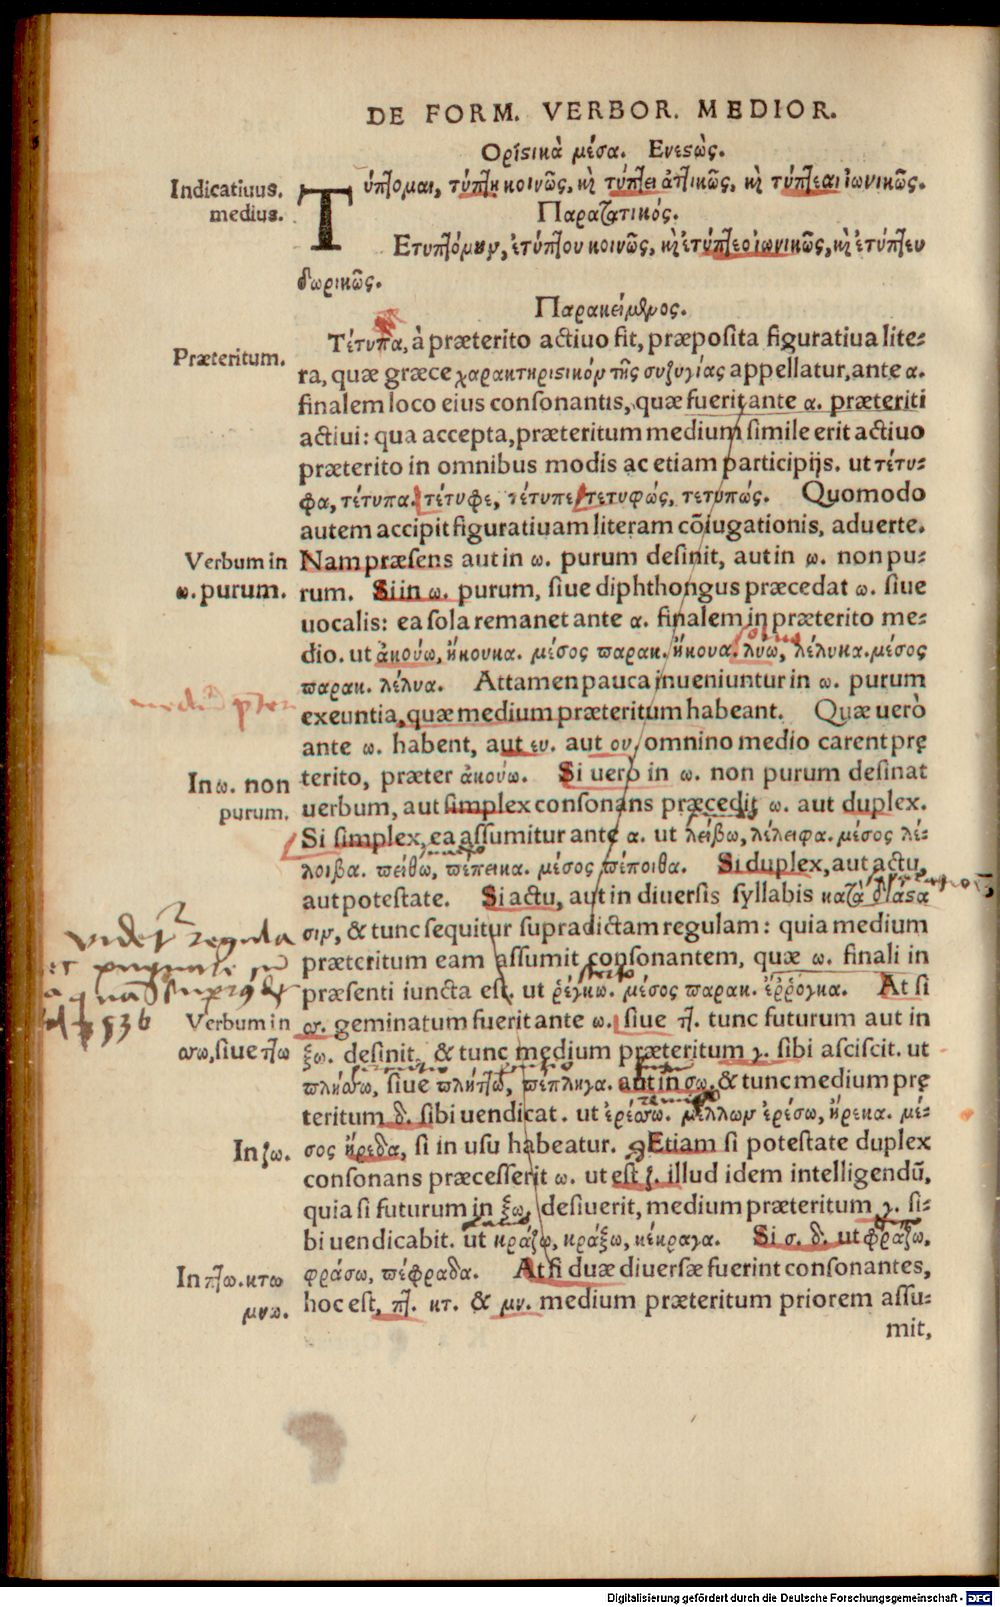 DE FORM. VERBOR. MEDIOR.
Ορῖϛικὰ μέσα. Ενεϛὼς.
Indicatiuus.
medius.
Τύπτομαι, τύπτη κοινῶς, κὶ τύπτει ἀττικῶς, κὶ τύπτεαι ἰωνικῶς.
Παρατατικός.
Ετυπτόμην, ἐτύπτου κοινῶς, κὶ ἐτύπτεο ἰωνικῶς, κὶ ἐτύπτευ
δωρικῶς.
Παρακείμενος.
Præteritum.
Τέτυπα, à præterito actiuo fit, præposita figuratiua lite-
ra, quæ græce χαρακτηριϛικόν τῆς συζυγίας appellatur, ante α.
finalem loco eius consonantis, quæ fuerit ante α. præteriti
actiui: qua accepta, præteritum medium simile erit actiuo
præterito in omnibus modis ac etiam participijs. ut τέτυ-
φα, τέτυπα. τέτυφε, τέτυπε, τετυφώς, τετυπώς. Quomodo
autem accipit figuratiuam literam cõiugationis, aduerte.
Verbum in
ω. purum.
Nam præsens aut in ω. purum desinit, aut in ω. non pu-
rum. Si in ω. purum, siue diphthongus præcedat ω. siue
uocalis: ea sola remanet ante α. finalem in præterito me-
dio. ut ἀκούω, ἤκουκα. μέσος παρακ. ἤκουα. λυω, λέλυκα. μέσος
παρακ. λέλυα. Attamen pauca inueniuntur in ω. purum
exeuntia, quæ medium præteritum habeant. Quæ uerò
ante ω. habent, aut ευ. aut ου, omnino medio carent prę
In ω. non
purum.
terito, præter ἀκούω. Si uero in ω. non purum desinat
uerbum, aut simplex consonans præcedit ω. aut duplex.
Si simplex, ea assumitur ante α. ut λείβω, λέλειφα. μέσος λέ-
λοιβα. πείθω, πέπεικα. μέσος πέποιθα. Si duplex, aut actu,
aut potestate. Si actu, aut in diuersis syllabis κατὰ διάϛα
σιν, & tunc sequitur supradictam regulam: quia medium
præteritum eam assumit consonantem, quæ ω. finali in
præsenti iuncta est. ut ῥέγκω. μέσος παρακ. ἔῤῥογκα. At si
videt regula
536
Verbum in
σσω, siue ττω
σσ. geminatum fuerit ante ω. siue ττ. tunc futurum aut in
ξω. desinit, & tunc medium præteritum γ. sibi asciscit. ut
πλήσσω, siue πλήττω, πέπληγα. aut in σω. & tunc medium prę
teritum δ. sibi uendicat. ut ἐρέσσω. μέλλων ἐρέσω, ἤρεκα. μέ-
In ζω.
σος ἤρεδα, si in usu habeatur. Etiam si potestate duplex
consonans præcesserit ω. ut est ζ. illud idem intelligendũ,
quia si futurum in ξω, desiuerit, medium præteritum γ. si-
bi uendicabit. ut κράζω, κράξω, κέκραγα. Si σ. δ. ut φράζω,
In πτω. κτω
μνω.
φράσω, πέφραδα. At si duæ diuersæ fuerint consonantes,
hoc est, πτ. κτ. & μν. medium præteritum priorem assu-
mit,
Digitalisierung gefördert durch die Deutsche Forschungsgemeinschaft - DFG